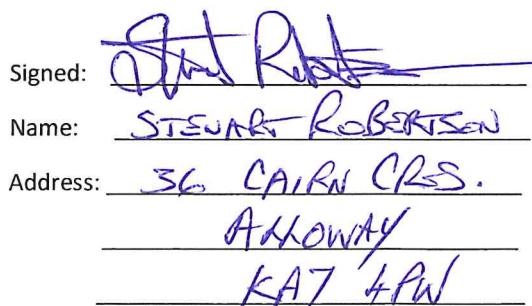 Signed: Stewart Robertson
Name: STEWART ROBERTSON
Address: 36 CAIRN CRES.
ALLOWAY
KA7 4PW